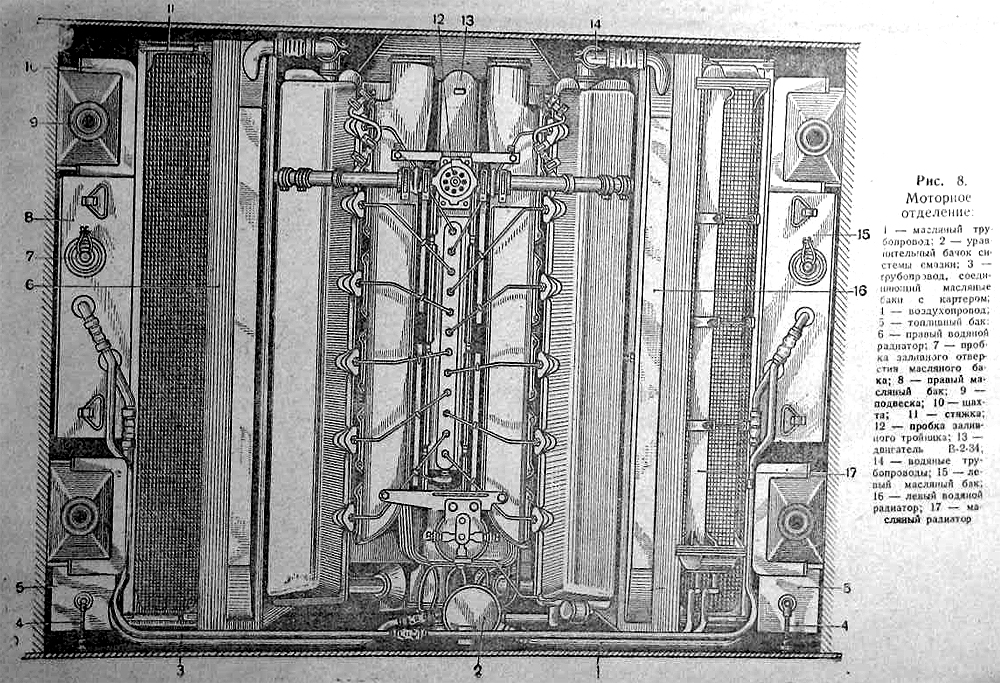 11
12 13
14
10
9
8
7
6
5
4
3
2
1
15
16
17
5
4
Рис. 8.
Моторное
отделение:
1 — масляный тру-
бопровод; 2 — урав-
нительный бачок си-
стемы смазки; 3 —
трубопровод, соеди-
няющий масляные
баки с картером;
4 — воздухопровод;
5 — топливный бак;
6 — правый водяной
радиатор; 7 — проб-
ка заливного отвер-
стия масляного ба-
ка; 8 — правый ма-
сляный бак; 9 —
подвеска; 10 — шах-
та; 11 — стяжка;
12 — пробка залив-
ного тройника; 13 —
двигатель В-2-34;
14 — водяные тру-
бопроводы; 15 — ле-
вый масляный бак;
16 — левый водяной
радиатор; 17 — ма-
сляный радиатор